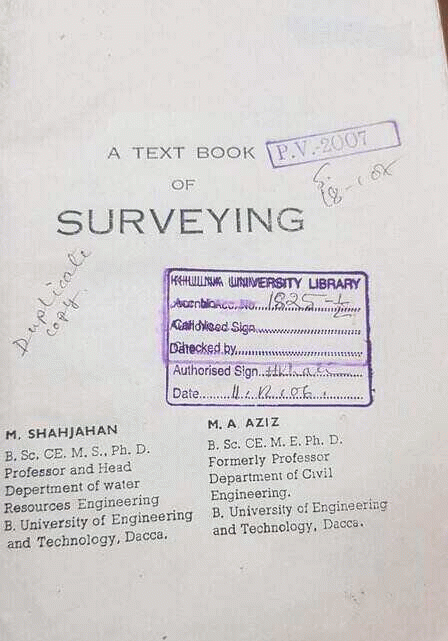 A TEXT BOOK
P.V.-2007
OF
SURVEYING
Duplicate
copy.
KHULNA UNIVERSITY LIBRARY
Authorised Sign
Checked by
Authorised Sign
Date
M. SHAHJAHAN
B. Sc, CE. M. S., Ph. D.
Professor and Head
Depertment of water
Resources Engineering
B. University of Engineering
and Technology, Dacca.
M. A. AZIZ
B. Sc. CE. M. E. Ph. D.
Formerly Professor
Department of Civil
Engineering.
B. University of Engineering
and Technology, Dacca.